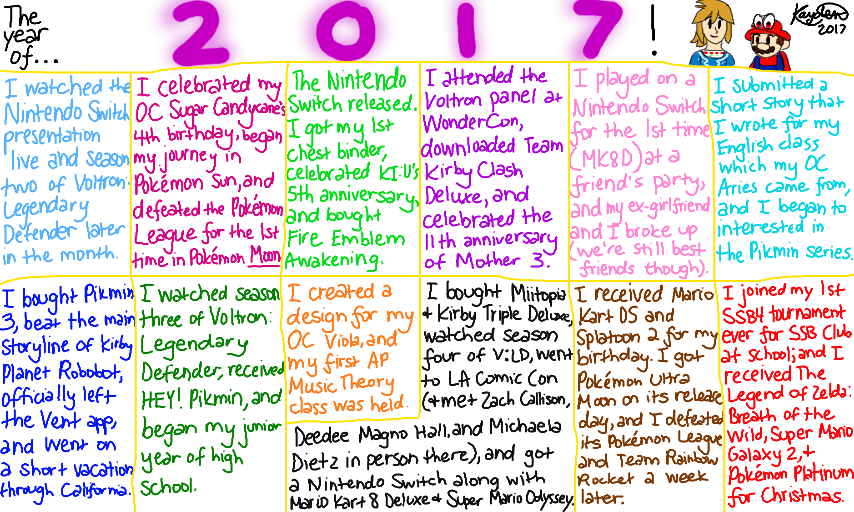 The
year
of...
2017!
Kaysten
2017
I watched the
Nintendo Switch
presentation
live and season
two of Voltron:
Legendary
Defender later
in the month.
I celebrated my
OC Sugar Candycane's
4th birthday, began
my journey in
Pokémon Sun, and
defeated the Pokémon
League for the 1st
time in Pokémon Moon
The Nintendo
Switch released.
I got my 1st
chest binder,
celebrated KI:U's
5th anniversary,
and bought
Fire Emblem
Awakening.
I attended the
Voltron panel at
WonderCon,
downloaded Team
Kirby Clash
Deluxe, and
celebrated the
11th anniversary
of Mother 3.
I played on a
Nintendo Switch
for the 1st time
(MK8D) at a
friend's party,
and my ex-girlfriend
and I broke up
(we're still best
friends though).
I submitted a
short story that
I wrote for my
English class
which my OC
Aries came from,
and I began to
interested in
the Pikmin series.
I bought Pikmin
3, beat the main
storyline of Kirby
Planet Robobot,
officially left
the Vent app,
and went on
a short vacation
through California.
I watched season
three of Voltron:
Legendary
Defender, received
HEY! Pikmin, and
began my junior
year of high
school.
I created a
design for my
OC Viola, and
my first AP
Music Theory
class was held.
I bought Miitopia
+ Kirby Triple Deluxe,
watched season
four of V:LD, went
to LA Comic Con
(+ met Zach Callison,
Deedee Magno Hall, and Michaela
Dietz in person there), and got
a Nintendo Switch along with
Mario Kart 8 Deluxe + Super Mario Odyssey.
I received Mario
Kart DS and
Splatoon 2 for my
birthday. I got
Pokémon Ultra
Moon on its release
day, and I defeated
its Pokémon League
and Team Rainbow
Rocket a week
later.
I joined my 1st
SSB4 tournament
ever for SSB Club
at school; and I
received The
Legend of Zelda:
Breath of the
Wild, Super Mario
Galaxy 2, +
Pokémon Platinum
for Christmas.